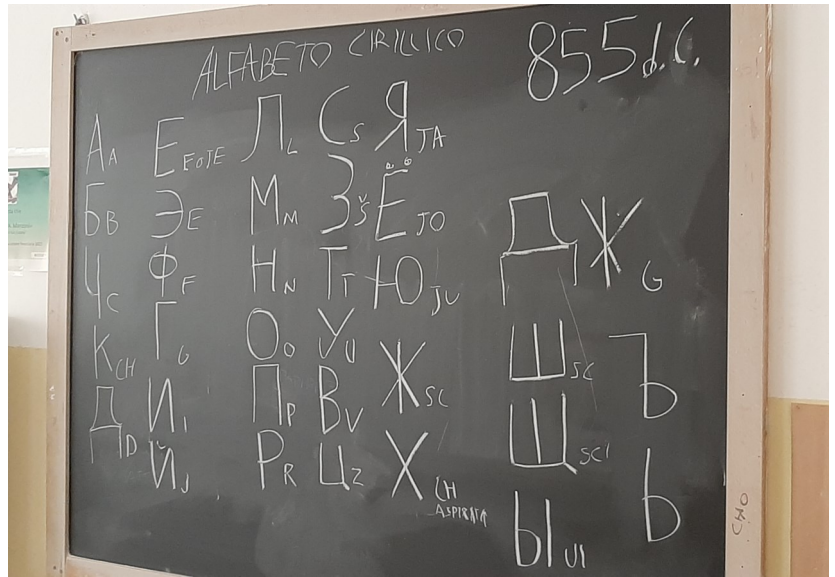 ALFABETO CIRILLICO
855 d.C.
А A
Б B
Ч C
К CH
Д D
Е E O JE
Э E
Ф F
Г G
И I
Й J
Л L
М M
Н N
О O
П P
Р R
С S
З Š
Т T
У U
В V
Ц Z
Я JA
Ё JO
Ю JU
Ж SC
Х CH
ASPIRATA
Д
Ж G
Ш SC
Щ SCI
Ы UI
Ъ
Ь
CHO